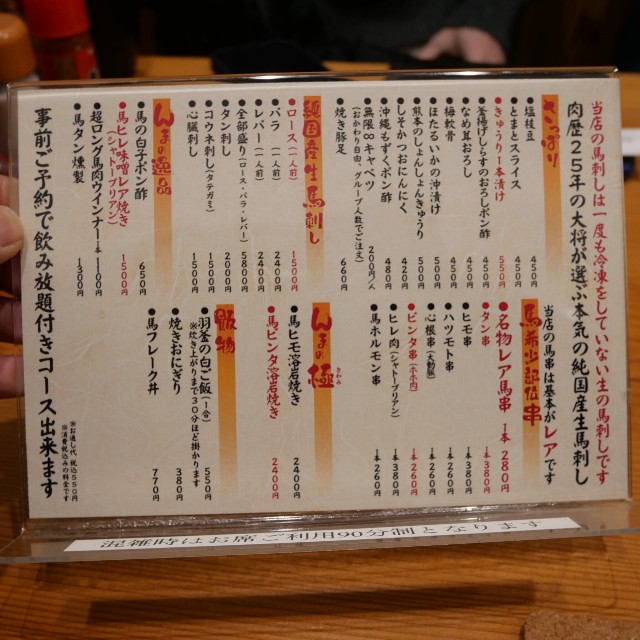 当店の馬刺しは一度も冷凍をしていない生の馬刺しです
肉歴25年の大将が選ぶ本気の純国産生馬刺し
さっぱり
塩枝豆 450円
とまとスライス 450円
きゅうり1本漬け 550円
釜揚げしらすのおろしポン酢 550円
なめ茸おろし 450円
梅軟骨 450円
ほたるいかの沖漬け 450円
熊本のしょんしょんきゅうり 500円
しそかつおにんにく 420円
沖縄もずくポン酢 480円
無限∞キャベツ 200円/人
(おかわり自由、グループ人数でご注文)
焼き豚足 660円
純国産生馬刺し
ロース(一人前) 1500円
バラ(一人前) 2400円
レバー(一人前) 2400円
全部盛り(ロース・バラ・レバー) 5800円
タン刺し 2000円
コウネ刺し(タテガミ) 1500円
心臓刺し 1500円
んまの逸品
馬の白子ポン酢 650円
馬ヒレ味噌レア焼き 1500円
(シャトーブリアン)
超ロング馬肉ウインナー 1本 1100円
馬タン燻製 1300円
馬希少部位串
当店の馬串は基本がレアです
名物レア馬串 1本 280円
タン串 1本 380円
ヒモ串 1本 260円
ハツモト串 1本 260円
心根串(大動脈) 1本 260円
ビンタ串(ホホ肉) 1本 260円
ヒレ肉(シャトーブリアン) 1本 380円
馬ホルモン串 1本 260円
んまの極
きわみ
馬ヒモ溶岩焼き 2400円
馬ビンタ溶岩焼き 2400円
飯物
羽釜の白ご飯(1合) 550円
※炊き上がりまで30分ほど掛かります
焼きおにぎり 380円
馬フレーク丼 770円
事前ご予約で飲み放題付きコース出来ます
※お通し代 税込550円
※消費税込みの料金です
混雑時はお席ご利用90分制となります